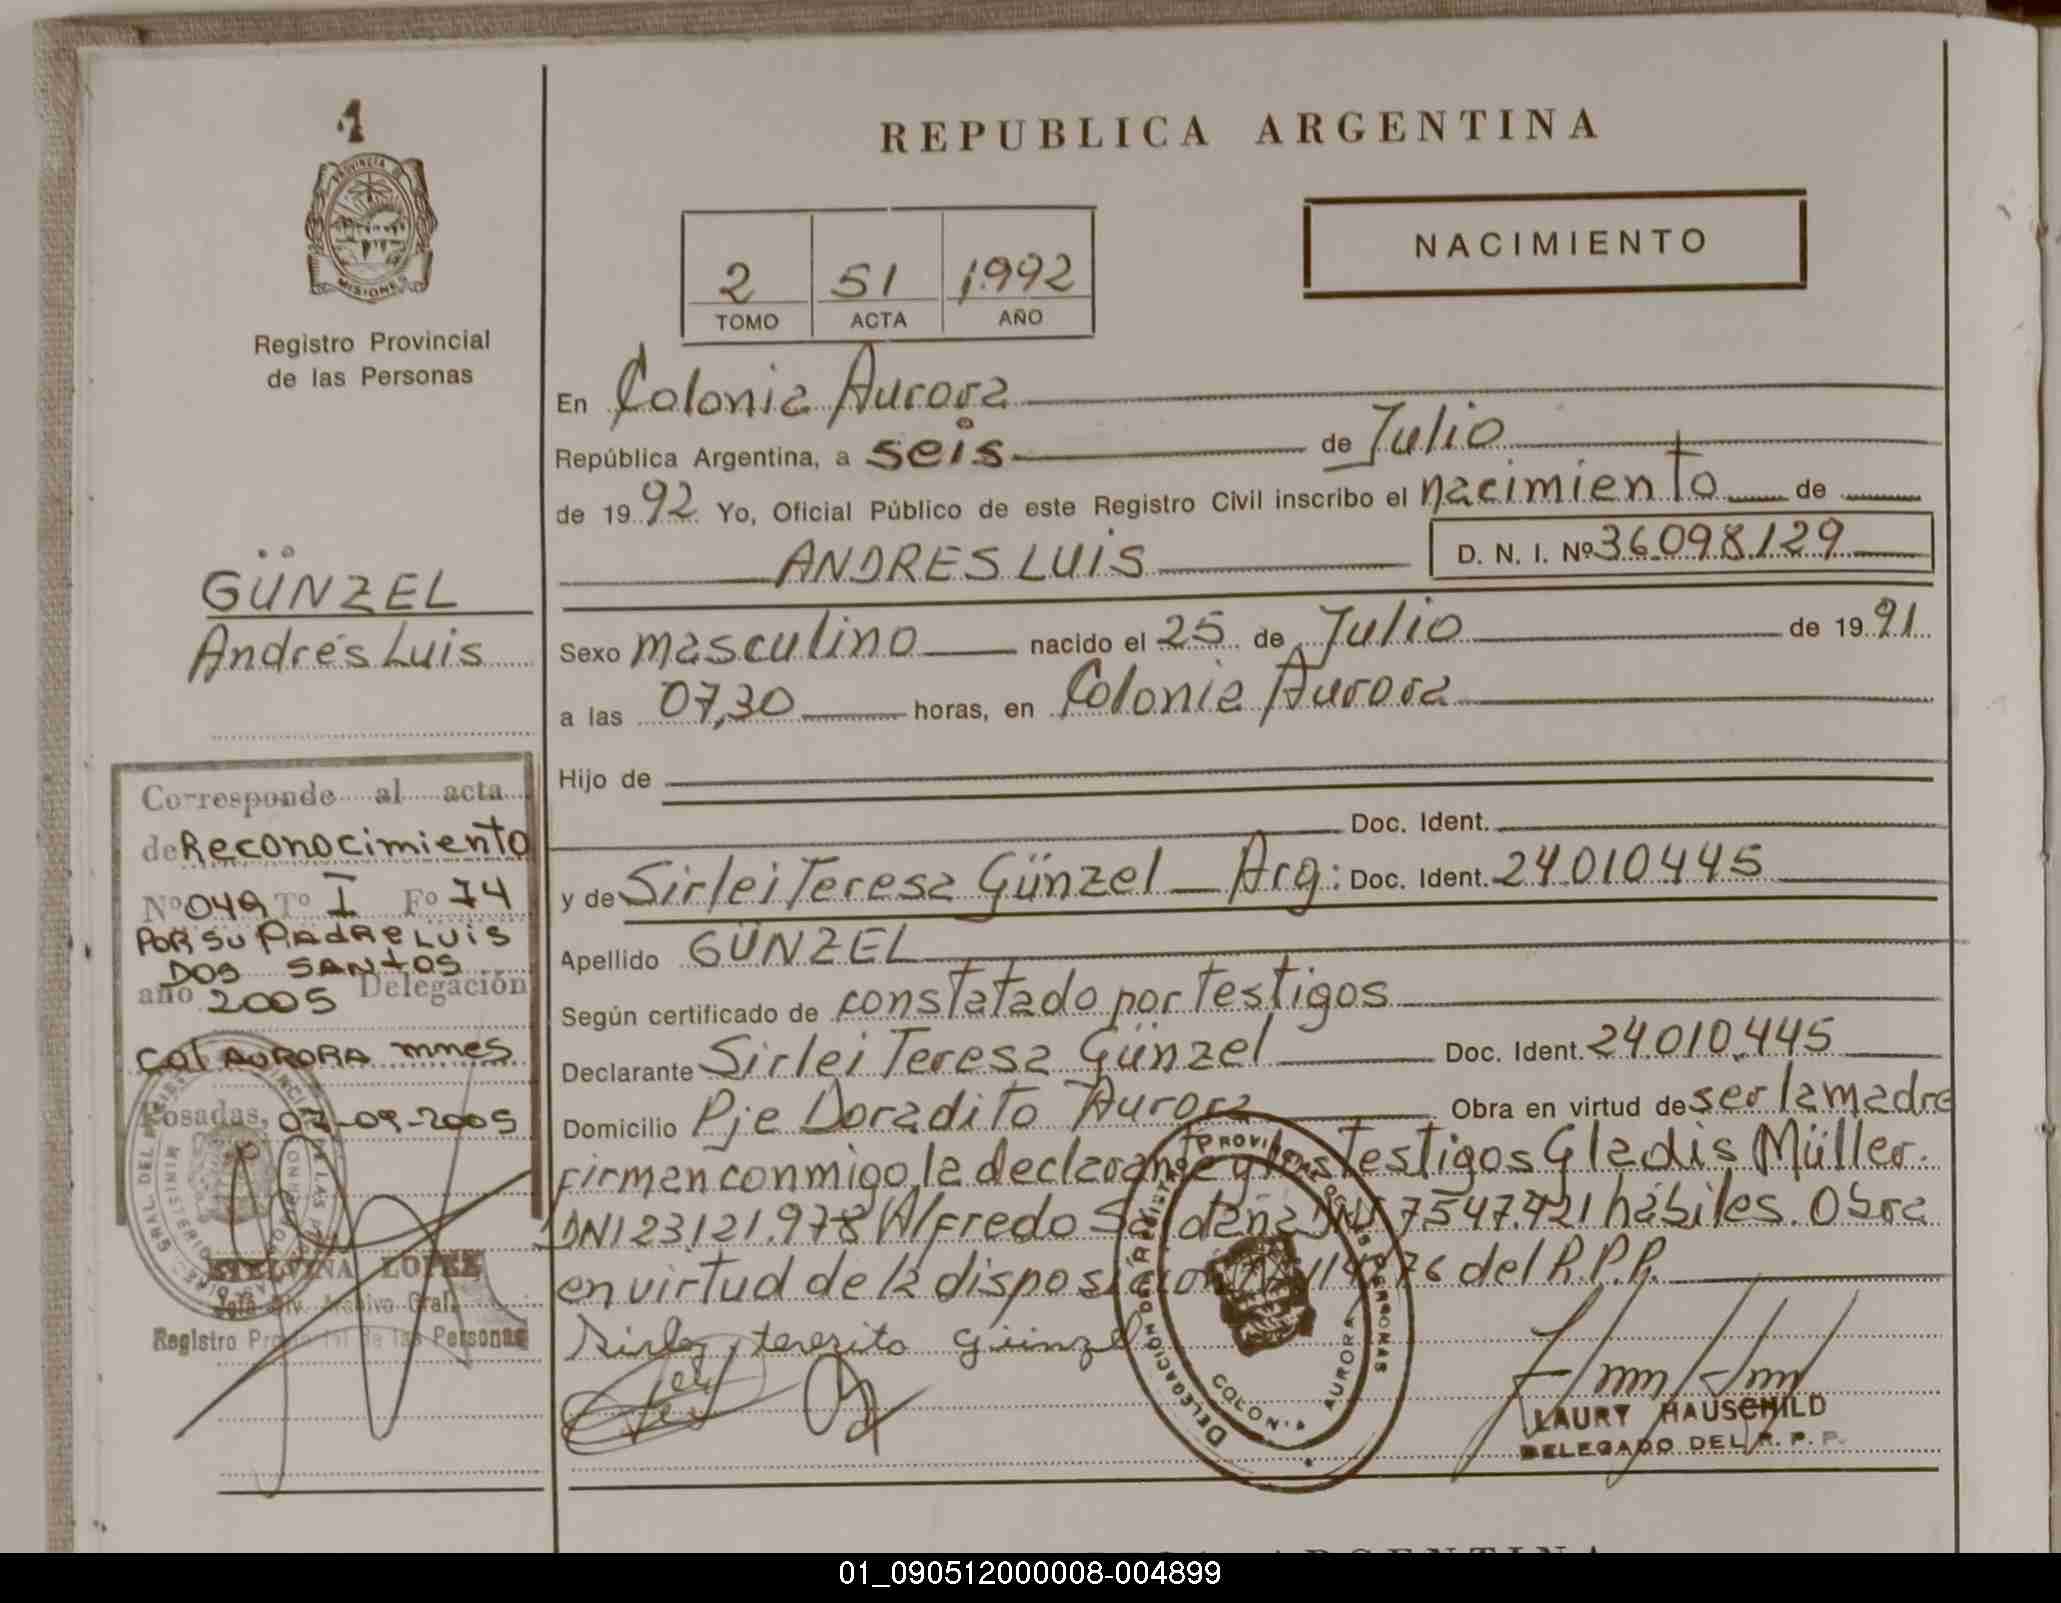 1
PROVINCIA DE
MISIONES
Registro Provincial
de las Personas
GÜNZEL
Andrés Luis
Corresponde al acta
de Reconocimiento
Nº 049 Tº I Fº 74
POR SU PADRE LUIS
DOS SANTOS
año 2005 Delegación
Col AURORA mnes
Posadas, 07-09-2005
LOPEZ
Archivo Gral.
Registro Provincial de las Personas
REPUBLICA ARGENTINA
NACIMIENTO
2 51 1992
TOMO ACTA AÑO
En Colonia Aurora
República Argentina, a seis de Julio
de 1992 Yo, Oficial Público de este Registro Civil inscribo el nacimiento de
ANDRES LUIS D. N. I. Nº 36098129
Sexo masculino nacido el 25 de Julio de 1991
a las 07,30 horas, en Colonia Aurora
Hijo de
Doc. Ident.
y de Sirlei Teresa Günzel Arg: Doc. Ident. 24010445
Apellido GÜNZEL
Según certificado de constatado por testigos
Declarante Sirlei Teresa Günzel Doc. Ident. 24.010.445
Domicilio Pje Doradito Aurora Obra en virtud de ser la madre
firman conmigo la declarante y los testigos Gladis Müller.
DNI 23.121.978 Alfredo DNI 7547.421 hábiles. Obra
en virtud de la disposición 76 del R.P.P.
teresita günzel
DELEGACION COLONIA AURORA
LAURY HAUSCHILD
DELEGADO DEL R. P. P.
ARGENTINA
01_090512000008-004899